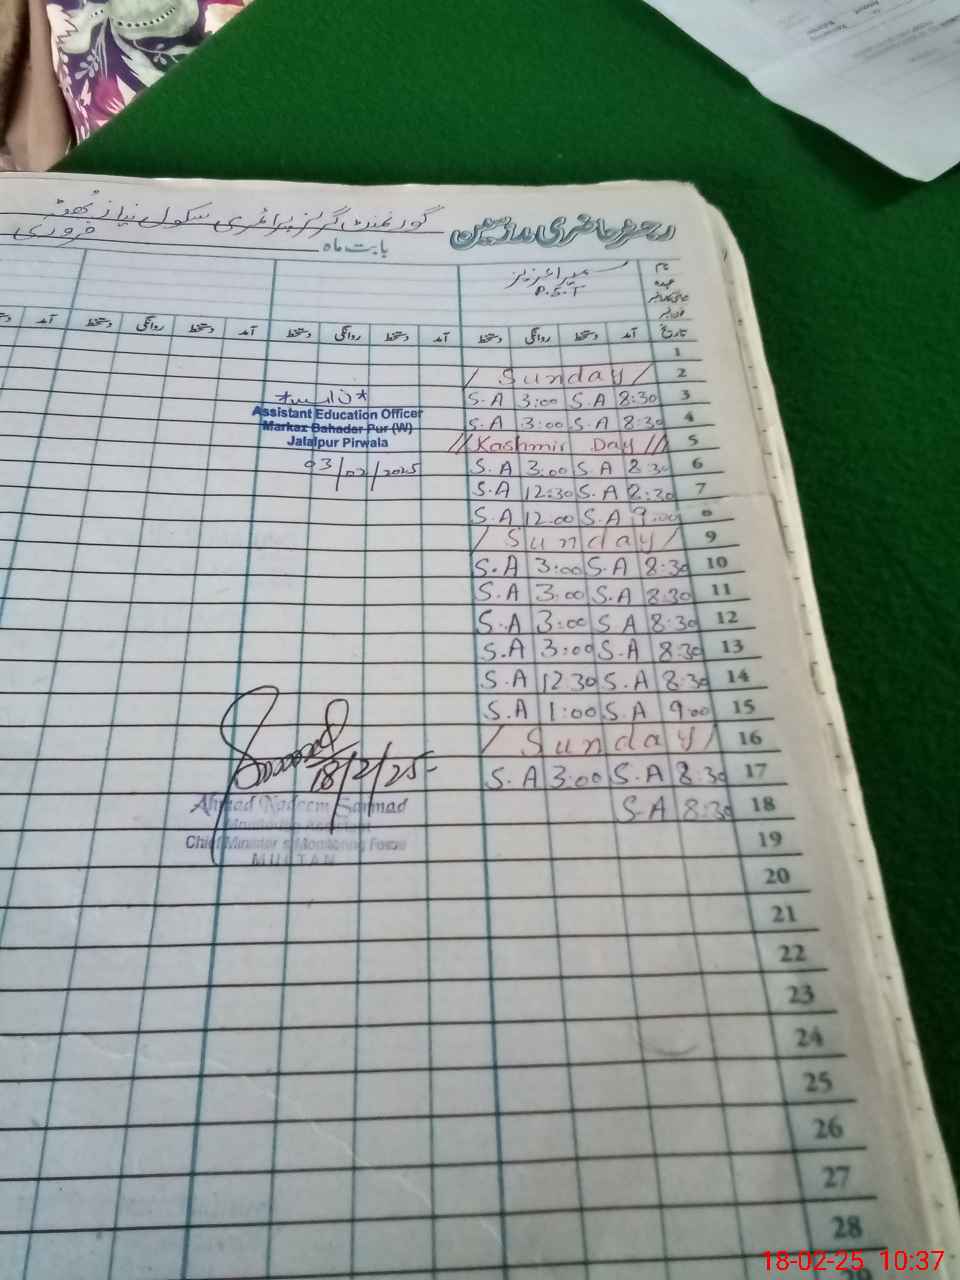 رجسٹر حاضری ملازمین گورنمنٹ گرلز پرائمری سکول نیاز بھٹہ
بابت ماہ فروری
نام سمیرا عزیز
عہدہ P.S.T
تاریخ آمد دستخط روانگی دستخط آمد دستخط روانگی دستخط آمد دستخط روانگی دستخط آمد
1
/ Sunday / 2
S.A 3:00 S.A 8:30 3
S.A 3:00 S.A 8:30 4
// Kashmir Day // 5
S.A 3:00 S.A 8:30 6
S.A 12:30 S.A 8:30 7
S.A 12.00 S.A 9:00 8
/ Sunday / 9
S.A 3:00 S.A 8:30 10
S.A 3:00 S.A 8:30 11
S.A 3:00 S.A 8:30 12
S.A 3:00 S.A 8:30 13
S.A 12.30 S.A 8:30 14
S.A 1:00 S.A 9:00 15
/ Sunday / 16
S.A 3:00 S.A 8:30 17
S.A 8:30 18
19
20
21
22
23
24
25
26
27
28
Assistant Education Officer
Markaz Bahadar Pur (W)
Jalalpur Pirwala
03/02/2025
18/2/25-
Ahmad Nadeem Sarmad
Monitoring Assistant
Chief Minister's Monitoring Force
MULTAN
18-02-25 10:37